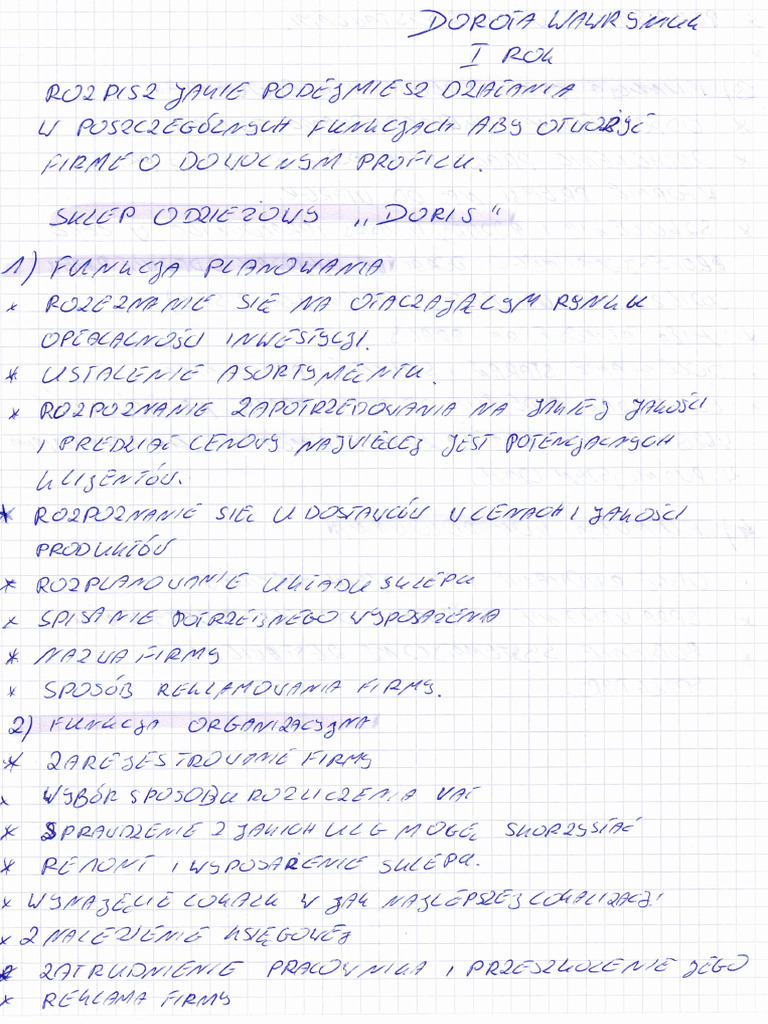 DOROTA WAWRYNIUK
I ROK
ROZPISZ JAKIE PODEJMIESZ DZIAŁANIA
W POSZCZEGÓLNYCH FUNKCJACH ABY OTWORZYĆ
FIRMĘ O DOWOLNYM PROFILU.
SKLEP ODZIEŻOWY „DORIS"
1) FUNKCJA PLANOWANIA
* ROZEZNANIE SIĘ NA OTACZAJĄCYM RYNKU
OPŁACALNOŚCI INWESTYCJI.
* USTALENIE ASORTYMENTU.
* ROZPOZNANIE ZAPOTRZEBOWANIA NA JAKIEJ JAKOŚCI
I PRZEDZIAŁ CENOWY NAJWIĘCEJ JEST POTENCJALNYCH
KLIJENTÓW.
* ROZPOZNANIE SIĘ U DOSTAWCÓW W CENACH I JAKOŚCI
PRODUKTÓW
* ROZPLANOWANIE UKŁADU SKLEPU
* SPISANIE POTRZEBNEGO WYPOSAŻENIA
* NAZWA FIRMY
* SPOSÓB REKLAMOWANIA FIRMY.
2) FUNKCJA ORGANIZACYJNA
* ZAREJESTROWANIE FIRMY
* WYBÓR SPOSOBU ROZLICZENIA VAT
* SPRAWDZENIE Z JAKICH ULG MOGĘ SKORZYSTAĆ
* REMONT I WYPOSAŻENIE SKLEPU.
* WYNAJĘCIE LOKALU W JAK NAJLEPSZEJ LOKALIZACJI
* ZNALEZIENIE KSIĘGOWEJ
* ZATRUDNIENIE PRACOWNIKA I PRZESZKOLENIE JEGO
* REKLAMA FIRMY